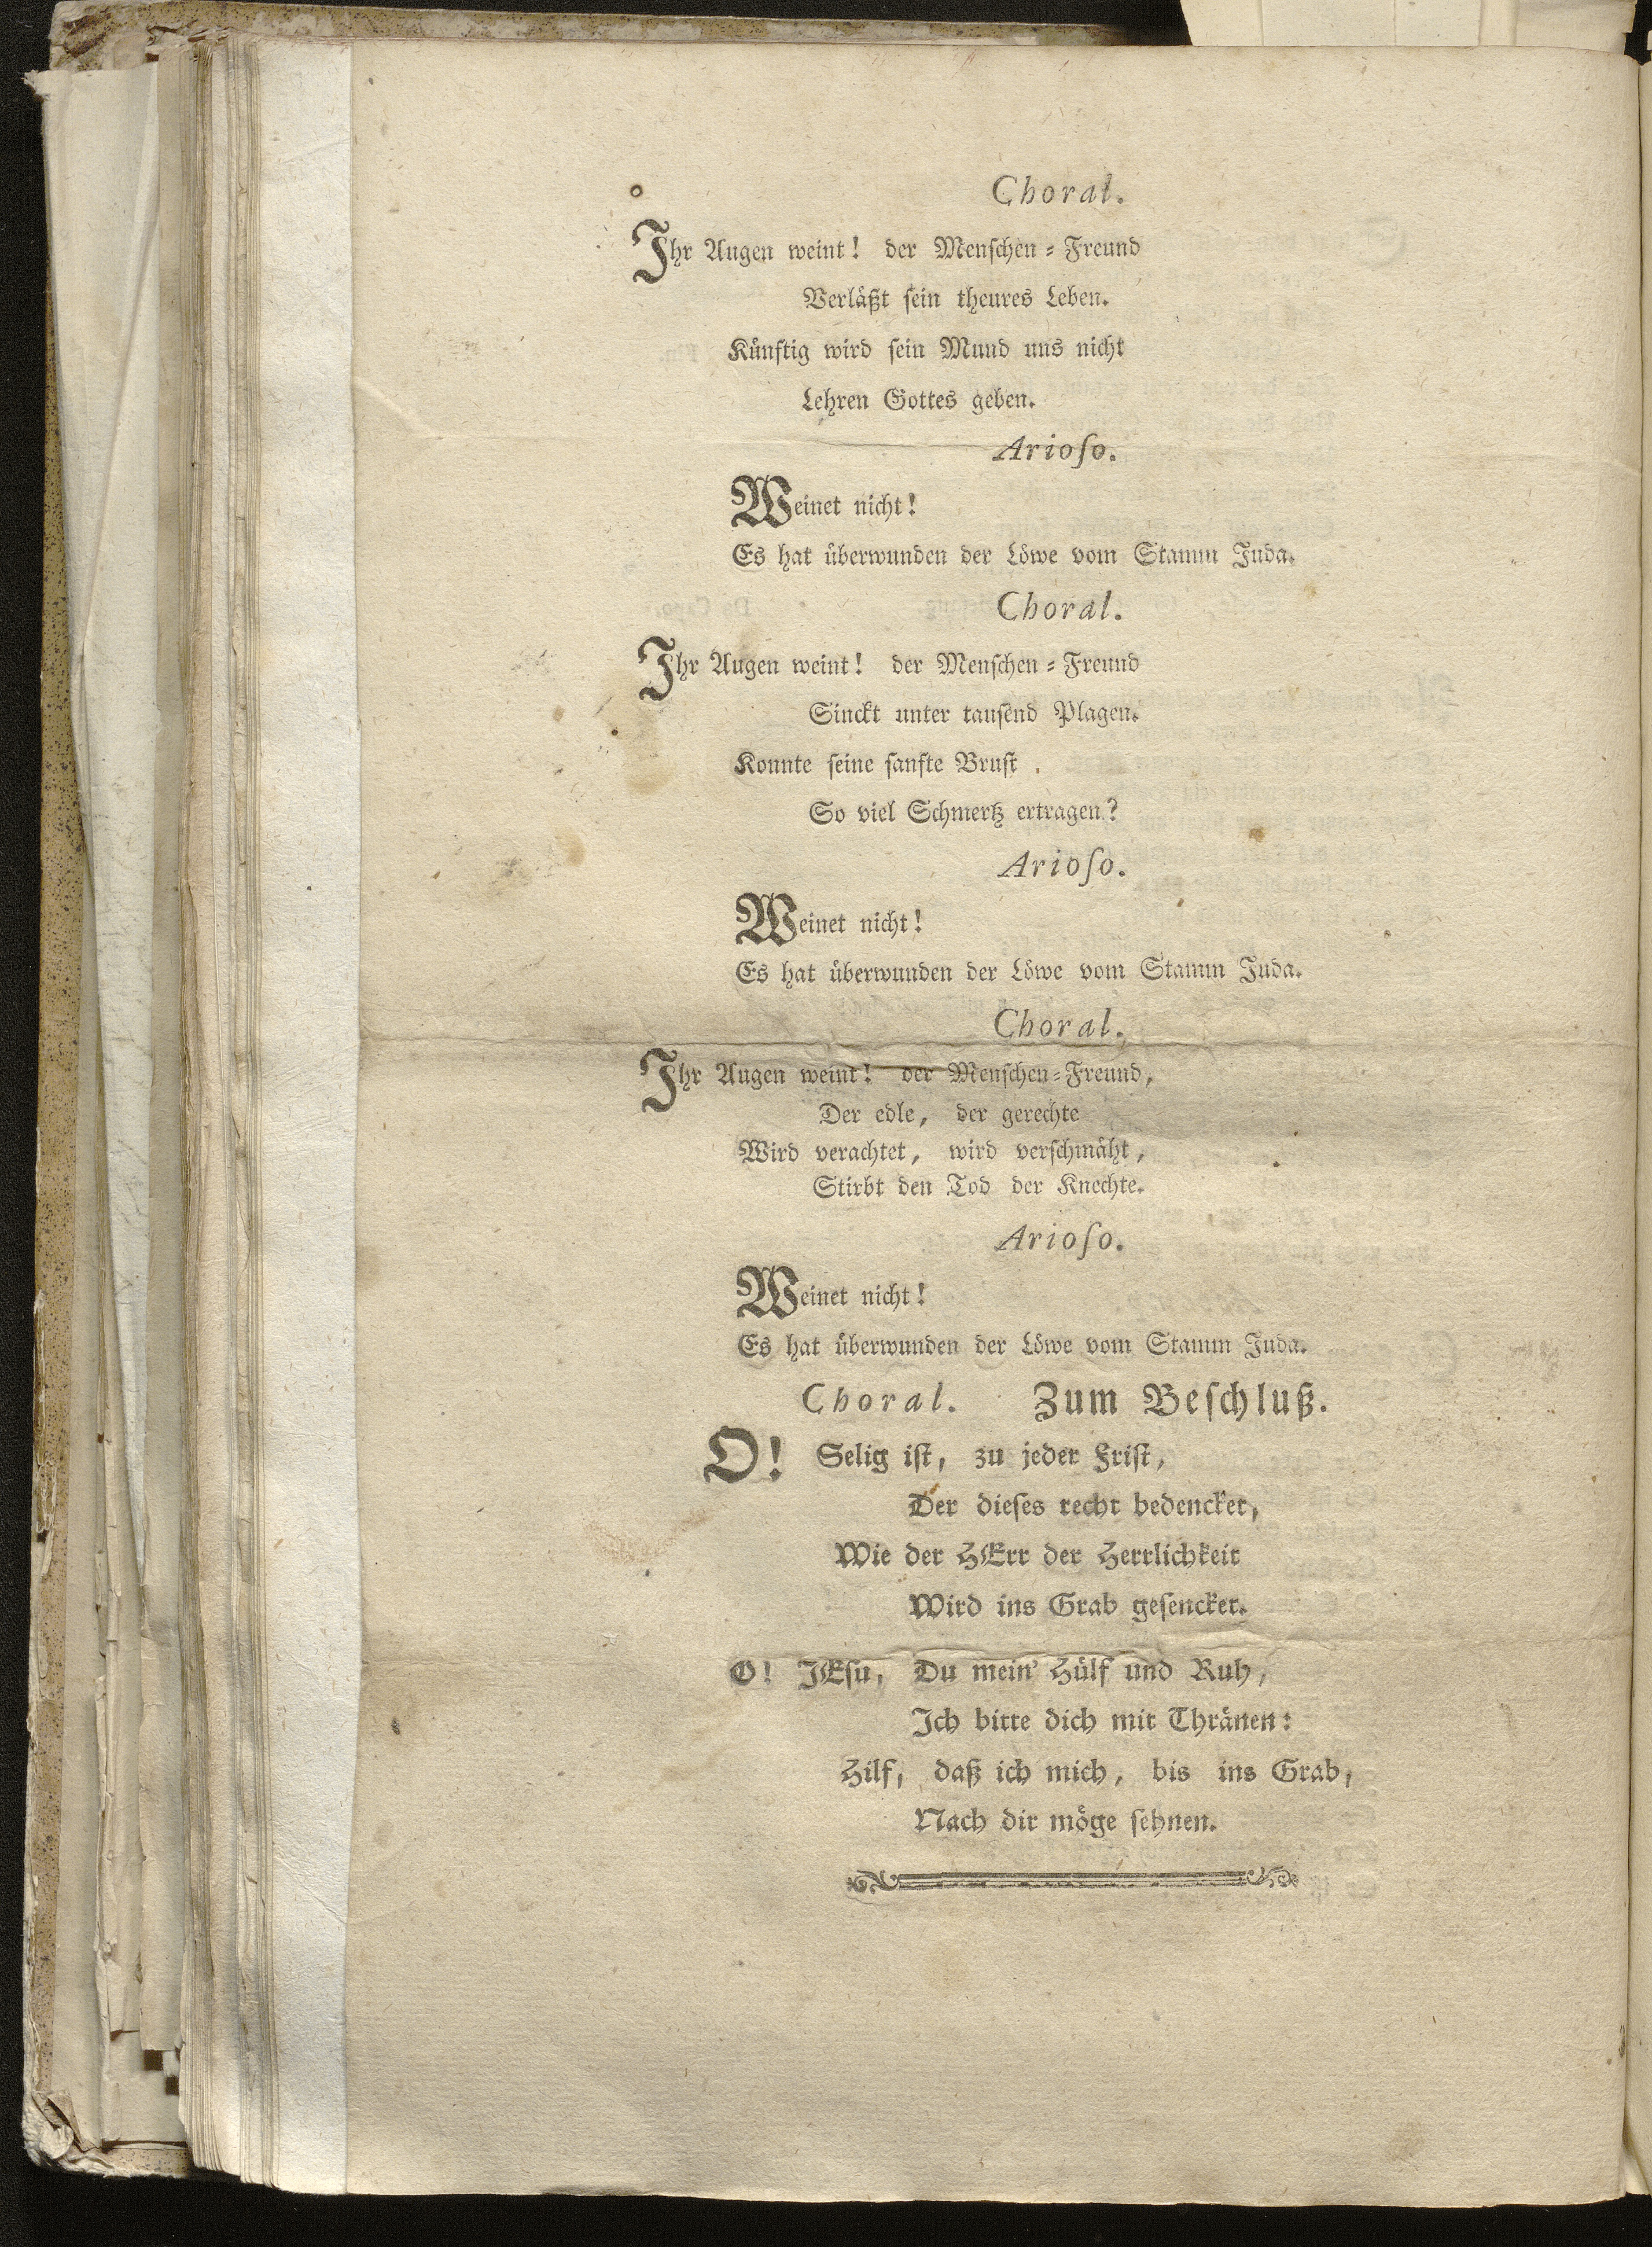 Choral.
Ihr Augen weint! der Menschen-Freund
Verläßt sein theures Leben.
Künftig wird sein Mund uns nicht
Lehren Gottes geben.
Arioſo.
Weinet nicht!
Es hat überwunden der Löwe vom Stamm Juda.
Choral.
Ihr Augen weint! der Menschen-Freund
Sinckt unter tausend Plagen.
Konnte seine sanfte Brust
So viel Schmertz ertragen?
Arioſo.
Weinet nicht!
Es hat überwunden der Löwe vom Stamm Juda.
Choral.
Ihr Augen weint! der Menschen-Freund,
Der edle, der gerechte
Wird verachtet, wird verschmäht,
Stirbt den Tod der Knechte.
Arioſo.
Weinet nicht!
Es hat überwunden der Löwe vom Stamm Juda.
Choral. Zum Beschluß.
O! Selig ist, zu jeder Frist,
Der dieses recht bedencket,
Wie der HErr der Herrlichkeit
Wird ins Grab gesencket.
O! JEsu, Du mein' Hülf und Ruh,
Ich bitte dich mit Thränen:
Hilf, daß ich mich, bis ins Grab,
Nach dir möge sehnen.